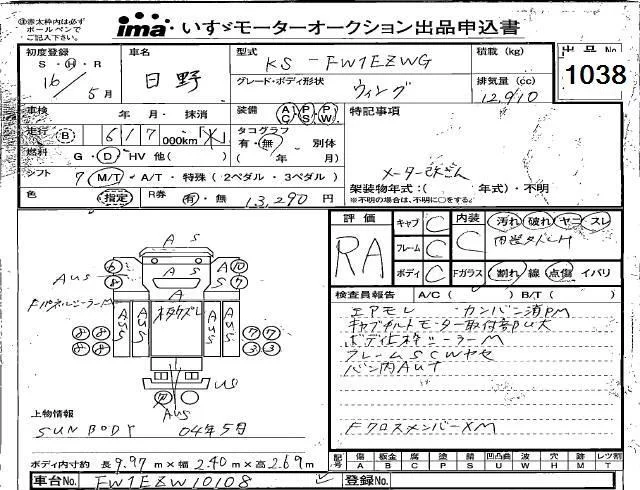 ③赤太枠内は必ず
ボールペンで
ご記入下さい。
ima・いすゞモーターオークション出品申込書
初度登録 車名 型式 積載(kg) 出品No
S・H・R 日野 KS-FW1EZWG 1038
16/5月 グレード・ボディ形状 ウィング 排気量(cc) 12,910
車検 年 月・抹消 装備 AC PS PW 特記事項
走行 B 617 000km タコグラフ
有・無 別体
燃料 G・D・HV 他( ) ( 年 月)
シフト 7 M/T・A/T・特殊(2ペダル・3ペダル) 架装物年式:( 年式)・不明
色 指定 R券 有・無 13,290円 ※不明の場合は、不明に○をする。
評価 キャブ C 内装 汚れ 破れ ヤニ スレ
RA フレーム C C
ボディ C Fガラス 割れ・線・点傷・イバリ
検査員報告 A/C( ) B/T( )
エアモレ カンバン済PM
ボディ上枠シーラーM
フレームSCWヤセ
FクロスメンバーXM
A S
A S
6 A U S 10
8 7
AUS
A
AUS AUS AUS AUS
8 8 7 7
8 8 3 3
US
AUS
上物情報
SUN BODY 04年5月
ボディ内寸約 長9.97m×幅2.40m×高2.69m
記号 傷 板金 腐 塗 錆 凹凸曲 波 穴 跡 レツ割
A B C P S U W H M T
車台No. FW1EZW10108 登録No.